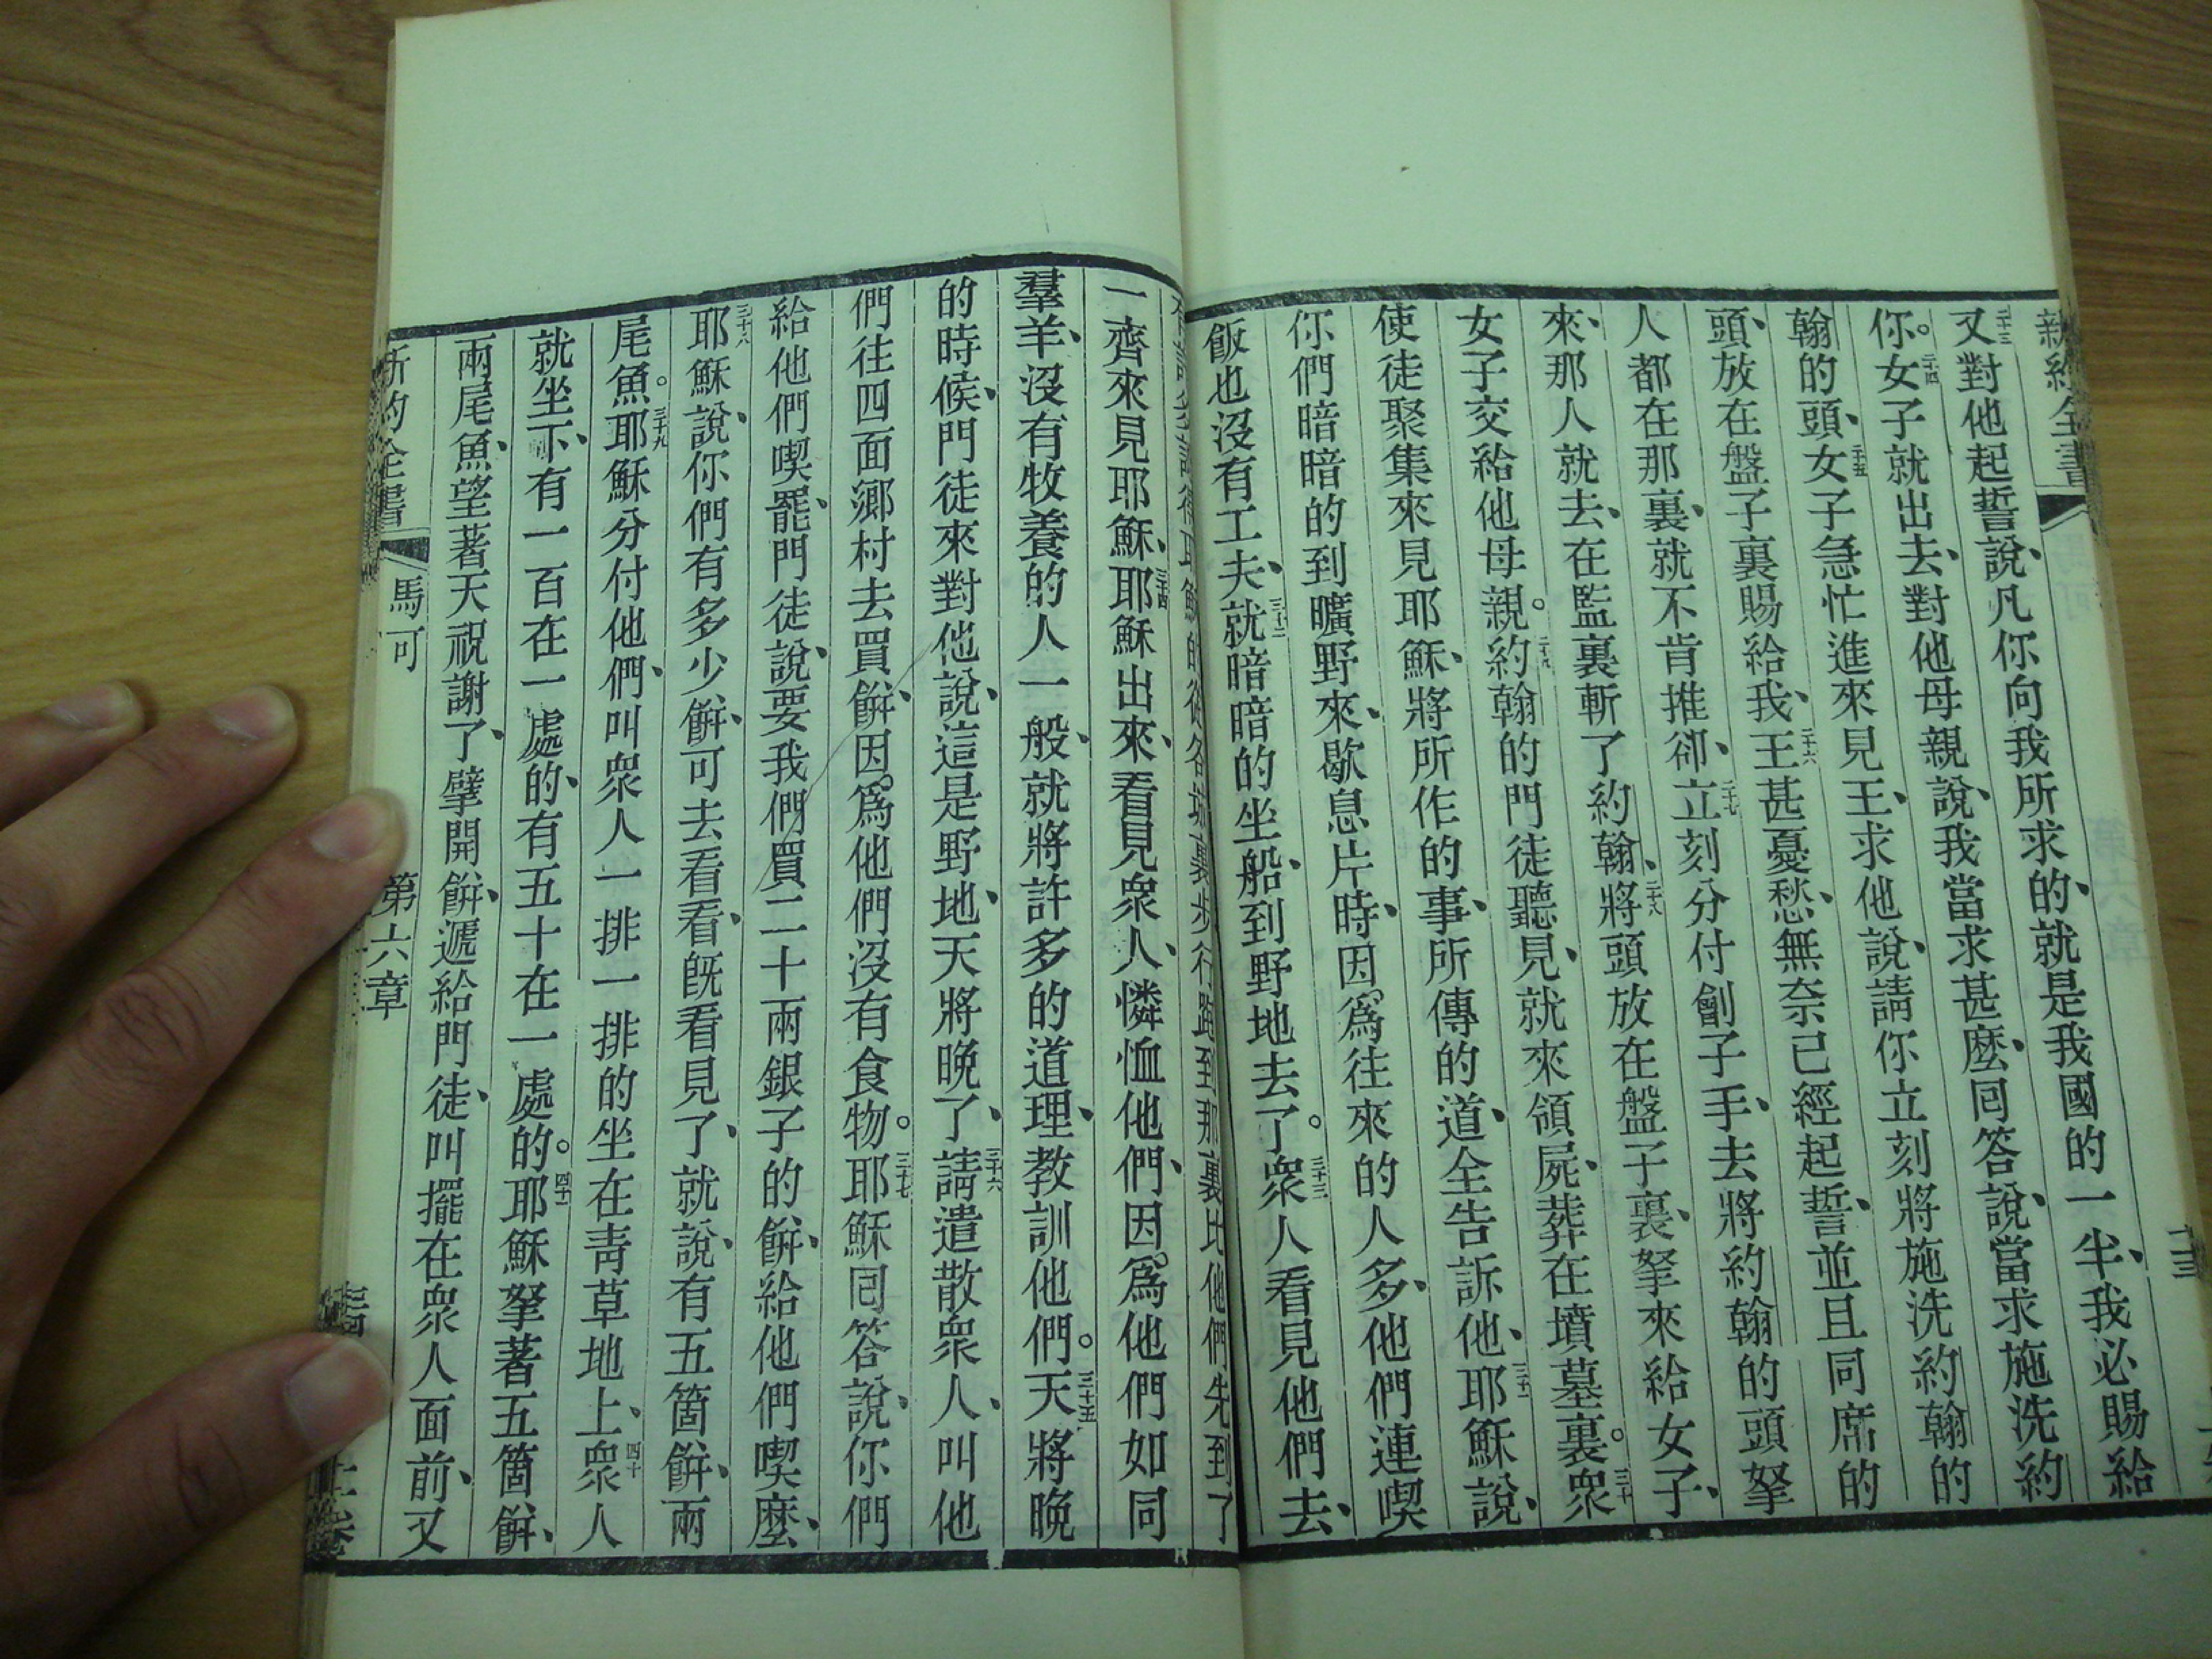 新約全書
又二十三對他起誓說、凡你向我所求的、就是我國的一半、我必賜給
你。女二十四子就出去、對他母親說、我當求甚麽、囘答說、當求施洗約
翰的頭、女二十五子急忙進來見王、求他說、請你立刻將施洗約翰的
頭、放在盤子裏賜給我、王二十六甚憂愁、無奈已經起誓、並且同席的
人都在那裏、就不肯推卻、立二十七刻分付劊子手、去將約翰的頭拏
來、那人就去、在監裏斬了約翰、將二十八頭放在盤子裏、拏來給女子、
女子交給他母親。約二十九翰的門徒聽見、就來領屍、葬在墳墓裏。眾三十
使徒聚集來見耶穌、將所作的事、所傳的道、全告訴他、耶三十一穌說、
你們暗暗的到曠野來、歇息片時、因爲往來的人多、他們連喫
飯也沒有工夫、就三十二暗暗的坐船、到野地去了。眾三十三人看見他們去、
耶穌的從各城裏步行跑到那裏比他們先到了
一齊來見耶穌、耶三十四穌出來、看見眾人、憐恤他們、因爲他們如同
羣羊、沒有牧養的人一般、就將許多的道理、教訓他們。天三十五將晚
的時候、門徒來對他說、這是野地、天將晚了、請三十六遣散眾人、叫他
們往四面鄉村去買餅、因爲他們沒有食物。耶三十七穌囘答說、你們
給他們喫罷、門徒說、要我們買二十兩銀子的餅、給他們喫麽、
耶三十八穌說、你們有多少餅、可去看看、旣看見了、就說、有五箇餅、兩
尾魚。耶三十九穌分付他們、叫眾人一排一排的坐在靑草地上、眾四十人
就坐下、有一百在一處的、有五十在一處的。耶四十一穌拏著五箇餅、
兩尾魚、望著天祝謝了、擘開餅、遞給門徒、叫擺在眾人面前、又
新約全書 馬可 第六章